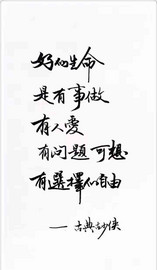 好的生命
是有事做
有人爱
有问题可想
有選擇的自由
——古典少侠